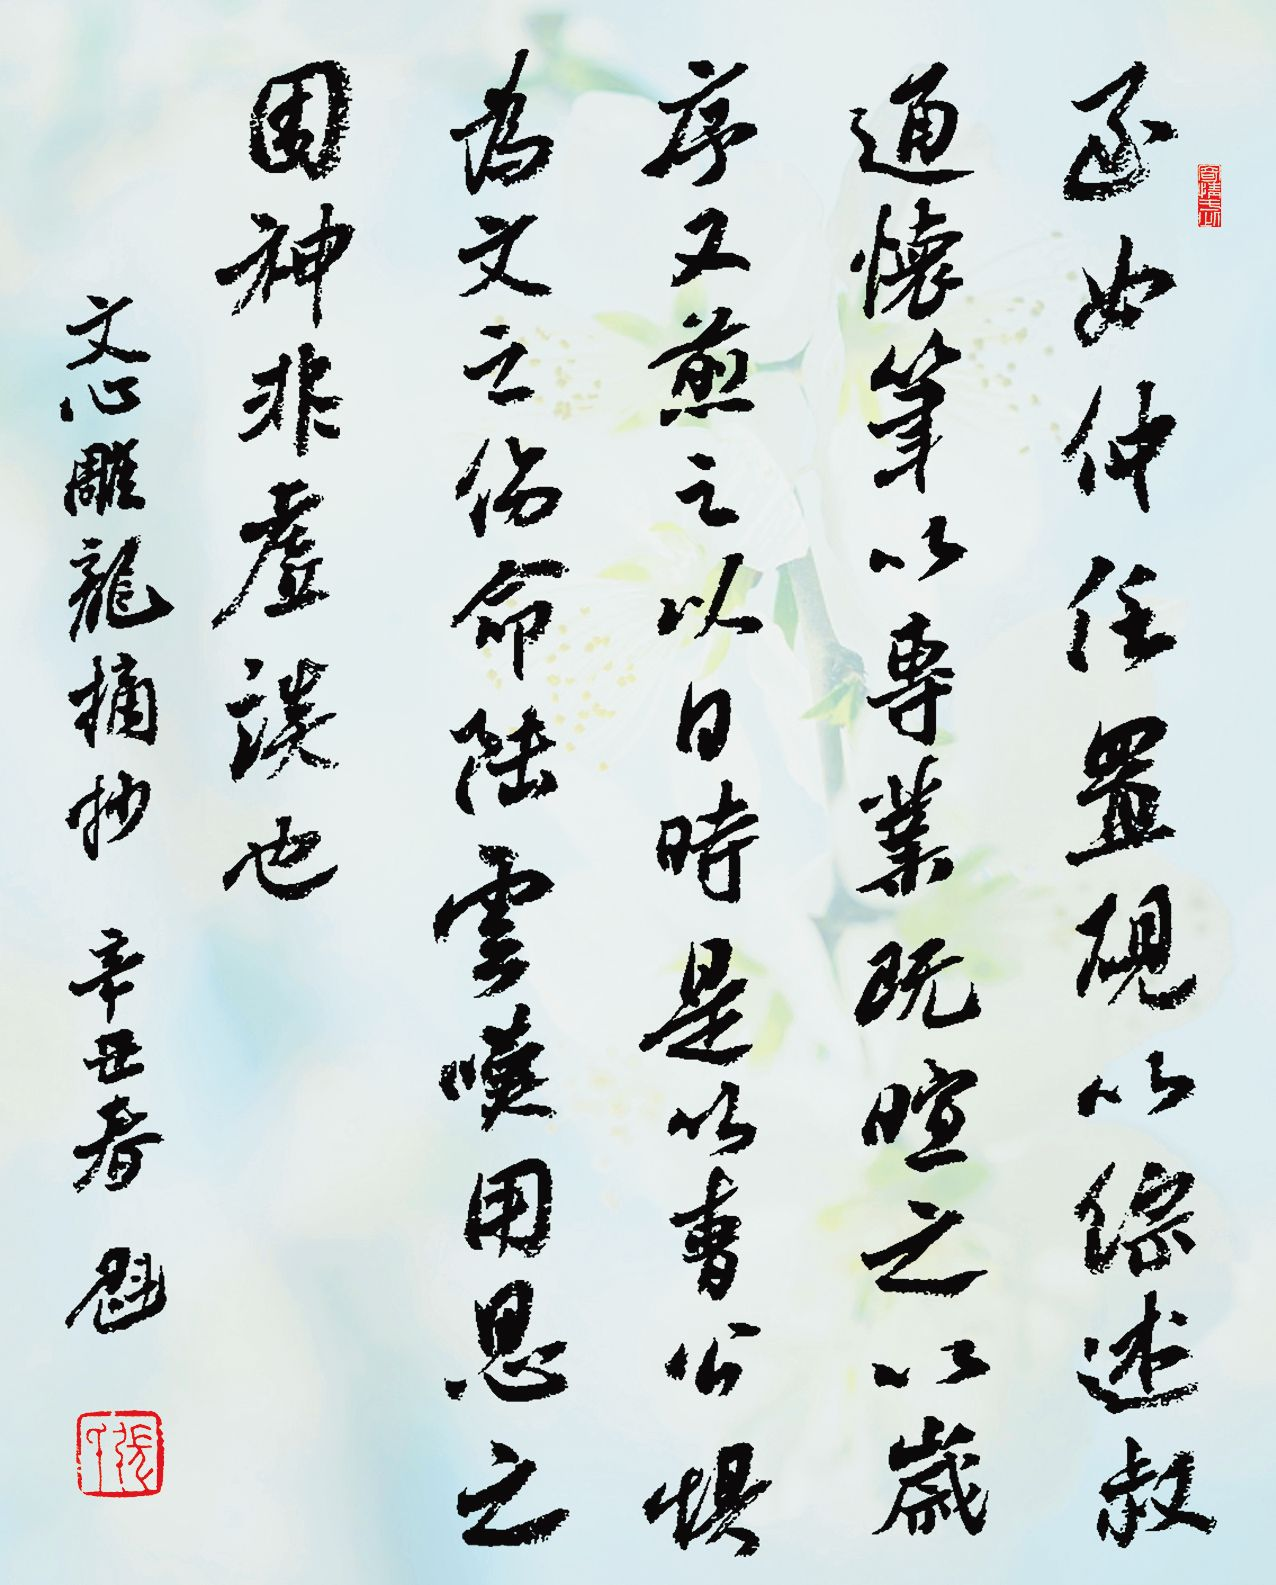 至如仲任置硯以綜述叔
通懷筆以專業既暄之以歲
序又煎之以日時是以曹公懼
為文之傷命陸雲嘆用思之
困神非虛談也
文心雕龍摘抄 辛丑春 魁
張